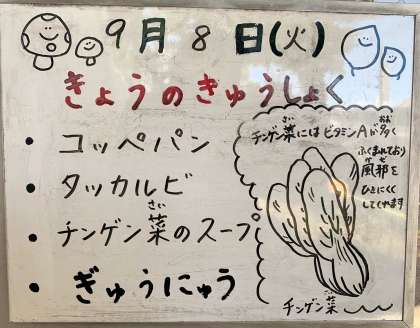 9月8日(火)
きょうのきゅうしょく
・コッペパン
・タッカルビ
・チンゲン菜のスープ
さい
・ぎゅうにゅう
さい おお
チンゲン菜にはビタミンAが多く
ふくまれており
かぜ
風邪を
ひきにくく
してくれます
さい
チンゲン菜